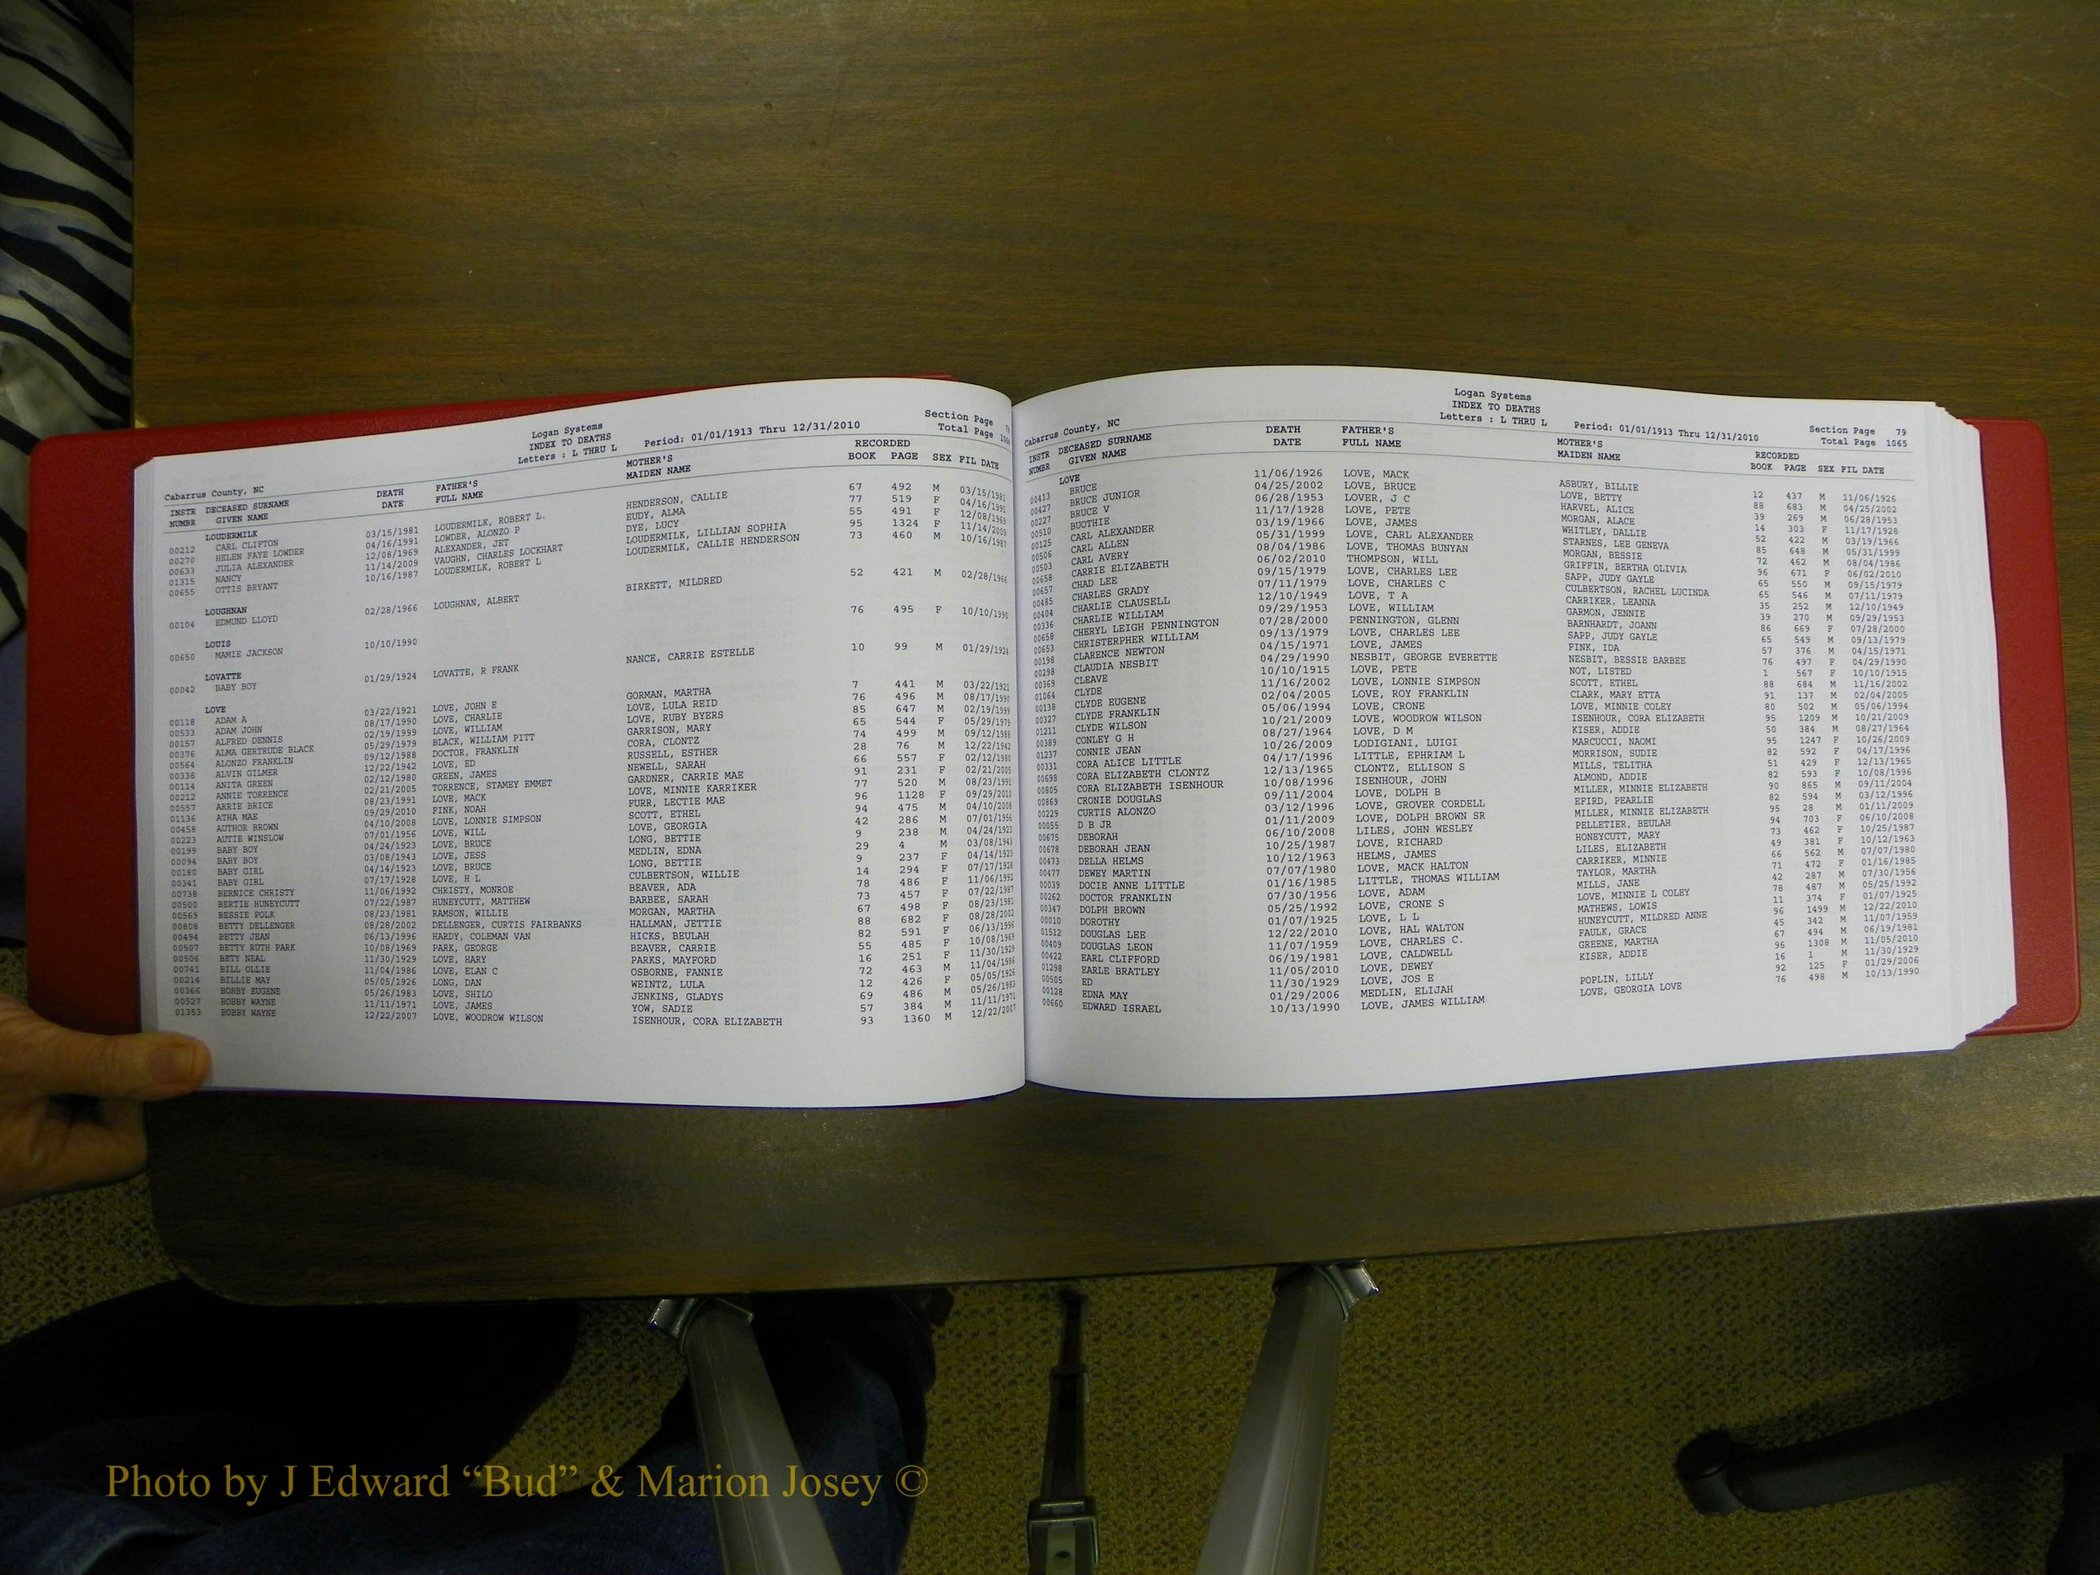 Logan Systems
INDEX TO DEATHS
Letters : L THRU L
Cabarrus County, NC Period: 01/01/1913 Thru 12/31/2010 Section Page
Total Page
INSTR DECEASED SURNAME DEATH FATHER'S MOTHER'S RECORDED
NUMBR GIVEN NAME DATE FULL NAME MAIDEN NAME BOOK PAGE SEX FIL DATE
LOUDERMILK
00212 CARL CLIFTON 03/15/1981 LOUDERMILK, ROBERT L. HENDERSON, CALLIE 67 492 M 03/15/1981
00270 HELEN FAYE LOWDER 04/16/1991 LOWDER, ALONZO P EUDY, ALMA 77 519 F 04/16/1991
00633 JULIA ALEXANDER 12/08/1969 ALEXANDER, JET DYE, LUCY 55 491 F 12/08/1969
01315 NANCY 11/14/2009 VAUGHN, CHARLES LOCKHART LOUDERMILK, LILLIAN SOPHIA 95 1324 F 11/14/2009
00655 OTTIS BRYANT 10/16/1987 LOUDERMILK, ROBERT L LOUDERMILK, CALLIE HENDERSON 73 460 M 10/16/1987
LOUGHNAN
00104 EDMUND LLOYD 02/28/1966 LOUGHNAN, ALBERT BIRKETT, MILDRED 52 421 M 02/28/1966
LOUIS
00650 MAMIE JACKSON 10/10/1990 76 495 F 10/10/1990
LOVATTE
00042 BABY BOY 01/29/1924 LOVATTE, R FRANK NANCE, CARRIE ESTELLE 10 99 M 01/29/1924
LOVE
00118 ADAM A 03/22/1921 LOVE, JOHN E GORMAN, MARTHA 7 441 M 03/22/1921
00533 ADAM JOHN 08/17/1990 LOVE, CHARLIE LOVE, LULA REID 76 496 M 08/17/1990
00157 ALFRED DENNIS 02/19/1999 LOVE, WILLIAM LOVE, RUBY BYERS 85 647 M 02/19/1999
00376 ALMA GERTRUDE BLACK 05/29/1979 BLACK, WILLIAM PITT GARRISON, MARY 65 544 F 05/29/1979
00564 ALONZO FRANKLIN 09/12/1988 DOCTOR, FRANKLIN CORA, CLONTZ 74 499 M 09/12/1988
00338 ALVIN GILMER 12/22/1942 LOVE, ED RUSSELL, ESTHER 28 76 M 12/22/1942
00114 ANITA GREEN 02/12/1980 GREEN, JAMES NEWELL, SARAH 66 557 F 02/12/1980
00212 ANNIE TORRENCE 02/21/2005 TORRENCE, STAMEY EMMET GARDNER, CARRIE MAE 91 231 F 02/21/2005
00557 ARRIE BRICE 08/23/1991 LOVE, MACK LOVE, MINNIE KARRIKER 77 520 M 08/23/1991
01136 ATHA MAE 09/29/2010 FINK, NOAH FURR, LECTIE MAE 96 1128 F 09/29/2010
00458 AUTHOR BROWN 04/10/2008 LOVE, LONNIE SIMPSON SCOTT, ETHEL 94 475 M 04/10/2008
00223 AUTIE WINSLOW 07/01/1956 LOVE, WILL LOVE, GEORGIA 42 286 M 07/01/1956
00199 BABY BOY 04/24/1923 LOVE, BRUCE LONG, BETTIE 9 238 M 04/24/1923
00094 BABY BOY 03/08/1943 LOVE, JESS MEDLIN, EDNA 29 4 M 03/08/1943
00180 BABY GIRL 04/14/1923 LOVE, BRUCE LONG, BETTIE 9 237 F 04/14/1923
00341 BABY GIRL 07/17/1928 LOVE, H L CULBERTSON, WILLIE 14 294 F 07/17/1928
00738 BERNICE CHRISTY 11/06/1992 CHRISTY, MONROE BEAVER, ADA 78 486 F 11/06/1992
00500 BERTIE HUNEYCUTT 07/22/1987 HUNEYCUTT, MATTHEW BARBEE, SARAH 73 457 F 07/22/1987
00569 BESSIE POLK 08/23/1981 RAMSON, WILLIE MORGAN, MARTHA 67 498 F 08/23/1981
00808 BETTY DELLENGER 08/28/2002 DELLENGER, CURTIS FAIRBANKS HALLMAN, JETTIE 88 682 F 08/28/2002
00494 BETTY JEAN 06/13/1996 HARDY, COLEMAN VAN HICKS, BEULAH 82 591 F 06/13/1996
00507 BETTY RUTH PARK 10/08/1969 PARK, GEORGE BEAVER, CARRIE 55 485 F 10/08/1969
00506 BETY NEAL 11/30/1929 LOVE, HARY PARKS, MAYFORD 16 251 F 11/30/1929
00741 BILL OLLIE 11/04/1986 LOVE, ELAN C OSBORNE, FANNIE 72 463 M 11/04/1986
00214 BILLIE MAY 05/05/1926 LONG, DAN WEINTZ, LULA 12 426 F 05/05/1926
00366 BOBBY EUGENE 05/26/1983 LOVE, SHILO JENKINS, GLADYS 69 486 M 05/26/1983
00527 BOBBY WAYNE 11/11/1971 LOVE, JAMES YOW, SADIE 57 384 M 11/11/1971
01353 BOBBY WAYNE 12/22/2007 LOVE, WOODROW WILSON ISENHOUR, CORA ELIZABETH 93 1360 M 12/22/2007
Logan Systems
INDEX TO DEATHS
Letters : L THRU L
Cabarrus County, NC Period: 01/01/1913 Thru 12/31/2010 Section Page 79
Total Page 1065
INSTR DECEASED SURNAME DEATH FATHER'S MOTHER'S RECORDED
NUMBR GIVEN NAME DATE FULL NAME MAIDEN NAME BOOK PAGE SEX FIL DATE
LOVE
00413 BRUCE 11/06/1926 LOVE, MACK ASBURY, BILLIE 12 437 M 11/06/1926
00427 BRUCE JUNIOR 04/25/2002 LOVE, BRUCE LOVE, BETTY 88 683 M 04/25/2002
00227 BRUCE V 06/28/1953 LOVER, J C HARVEL, ALICE 39 269 M 06/28/1953
00510 BUOTHIE 11/17/1928 LOVE, PETE MORGAN, ALACE 14 303 F 11/17/1928
00125 CARL ALEXANDER 03/19/1966 LOVE, JAMES WHITLEY, DALLIE 52 422 M 03/19/1966
00506 CARL ALLEN 05/31/1999 LOVE, CARL ALEXANDER STARNES, LEE GENEVA 85 648 M 05/31/1999
00503 CARL AVERY 08/04/1986 LOVE, THOMAS BUNYAN MORGAN, BESSIE 72 462 M 08/04/1986
00658 CARRIE ELIZABETH 06/02/2010 THOMPSON, WILL GRIFFIN, BERTHA OLIVIA 96 671 F 06/02/2010
00657 CHAD LEE 09/15/1979 LOVE, CHARLES LEE SAPP, JUDY GAYLE 65 550 M 09/15/1979
00485 CHARLES GRADY 07/11/1979 LOVE, CHARLES C CULBERTSON, RACHEL LUCINDA 65 546 M 07/11/1979
00404 CHARLIE CLAUSELL 12/10/1949 LOVE, T A CARRIKER, LEANNA 35 252 M 12/10/1949
00336 CHARLIE WILLIAM 09/29/1953 LOVE, WILLIAM GARMON, JENNIE 39 270 M 09/29/1953
00658 CHERYL LEIGH PENNINGTON 07/28/2000 PENNINGTON, GLENN BARNHARDT, JOANN 86 669 F 07/28/2000
00653 CHRISTERPHER WILLIAM 09/13/1979 LOVE, CHARLES LEE SAPP, JUDY GAYLE 65 549 M 09/13/1979
00198 CLARENCE NEWTON 04/15/1971 LOVE, JAMES FINK, IDA 57 376 M 04/15/1971
00298 CLAUDIA NESBIT 04/29/1990 NESBIT, GEORGE EVERETTE NESBIT, BESSIE BARBEE 76 497 F 04/29/1990
00369 CLEAVE 10/10/1915 LOVE, PETE NOT, LISTED 1 567 F 10/10/1915
01064 CLYDE 11/16/2002 LOVE, LONNIE SIMPSON SCOTT, ETHEL 88 684 M 11/16/2002
00138 CLYDE EUGENE 02/04/2005 LOVE, ROY FRANKLIN CLARK, MARY ETTA 91 137 M 02/04/2005
00327 CLYDE FRANKLIN 05/06/1994 LOVE, CRONE LOVE, MINNIE COLEY 80 502 M 05/06/1994
01211 CLYDE WILSON 10/21/2009 LOVE, WOODROW WILSON ISENHOUR, CORA ELIZABETH 95 1209 M 10/21/2009
00389 CONLEY G H 08/27/1964 LOVE, D M KISER, ADDIE 50 384 M 08/27/1964
01237 CONNIE JEAN 10/26/2009 LODIGIANI, LUIGI MARCUCCI, NAOMI 95 1247 F 10/26/2009
00331 CORA ALICE LITTLE 04/17/1996 LITTLE, EPHRIAM L MORRISON, SUDIE 82 592 F 04/17/1996
00698 CORA ELIZABETH CLONTZ 12/13/1965 CLONTZ, ELLISON S MILLS, TELITHA 51 429 F 12/13/1965
00805 CORA ELIZABETH ISENHOUR 10/08/1996 ISENHOUR, JOHN ALMOND, ADDIE 82 593 F 10/08/1996
00869 CRONIE DOUGLAS 09/11/2004 LOVE, DOLPH B MILLER, MINNIE ELIZABETH 90 865 M 09/11/2004
00229 CURTIS ALONZO 03/12/1996 LOVE, GROVER CORDELL EFIRD, PEARLIE 82 594 M 03/12/1996
00055 D B JR 01/11/2009 LOVE, DOLPH BROWN SR MILLER, MINNIE ELIZABETH 95 28 M 01/11/2009
00675 DEBORAH 06/10/2008 LILES, JOHN WESLEY PELLETIER, BEULAH 94 703 F 06/10/2008
00678 DEBORAH JEAN 10/25/1987 LOVE, RICHARD HONEYCUTT, MARY 73 462 F 10/25/1987
00473 DELLA HELMS 10/12/1963 HELMS, JAMES LILES, ELIZABETH 49 381 F 10/12/1963
00477 DEWEY MARTIN 07/07/1980 LOVE, MACK HALTON CARRIKER, MINNIE 66 562 M 07/07/1980
00039 DOCIE ANNE LITTLE 01/16/1985 LITTLE, THOMAS WILLIAM TAYLOR, MARTHA 71 472 F 01/16/1985
00262 DOCTOR FRANKLIN 07/30/1956 LOVE, ADAM MILLS, JANE 42 287 M 07/30/1956
00347 DOLPH BROWN 05/25/1992 LOVE, CRONE S LOVE, MINNIE L COLEY 78 487 M 05/25/1992
00010 DOROTHY 01/07/1925 LOVE, L L MATHEWS, LOWIS 11 374 F 01/07/1925
01512 DOUGLAS LEE 12/22/2010 LOVE, HAL WALTON HUNEYCUTT, MILDRED ANNE 96 1499 M 12/22/2010
00409 DOUGLAS LEON 11/07/1959 LOVE, CHARLES C. FAULK, GRACE 45 342 M 11/07/1959
00422 EARL CLIFFORD 06/19/1981 LOVE, CALDWELL GREENE, MARTHA 67 494 M 06/19/1981
01298 EARLE BRATLEY 11/05/2010 LOVE, DEWEY KISER, ADDIE 96 1308 M 11/05/2010
00505 ED 11/30/1929 LOVE, JOS E 16 1 M 11/30/1929
00128 EDNA MAY 01/29/2006 MEDLIN, ELIJAH POPLIN, LILLY 92 125 F 01/29/2006
00660 EDWARD ISRAEL 10/13/1990 LOVE, JAMES WILLIAM LOVE, GEORGIA LOVE 76 498 M 10/13/1990
Photo by J Edward “Bud” & Marion Josey ©